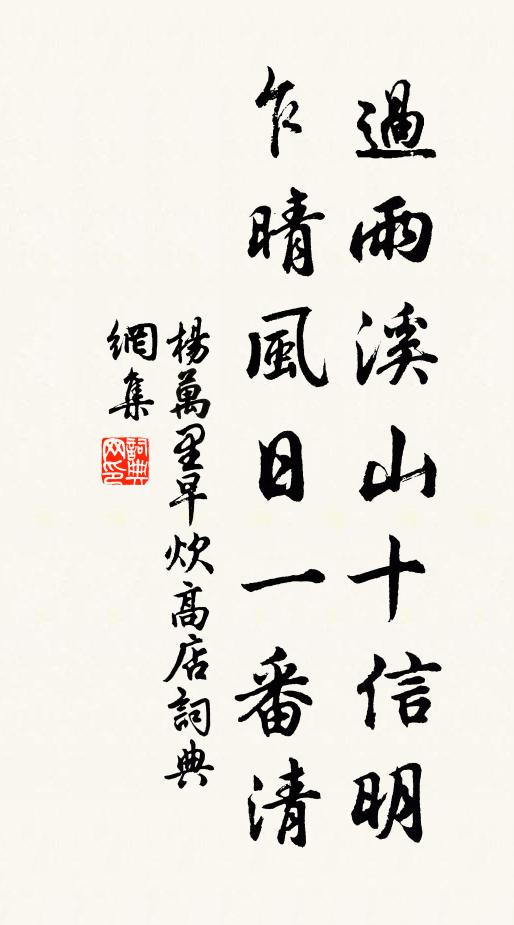 過雨溪山十信明
乍晴風日一番清
楊萬里早炊高店詞典
網集
詞典網印